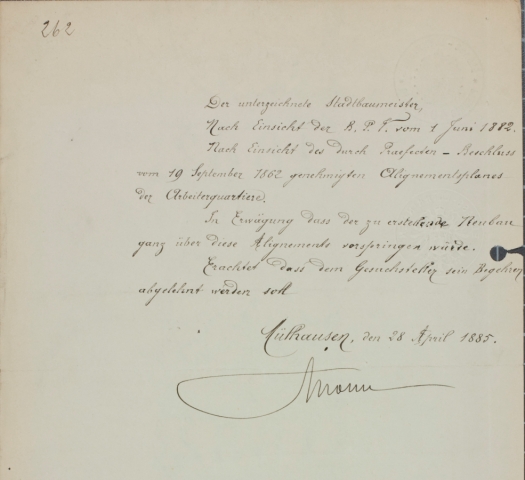 262
Der unterzeichnete Stadtbaumeister,
Nach Einsicht der B. P. V. vom 1 Juni 1882.
Nach Einsicht des durch Praefecten-Beschluss
vom 19 September 1862 genehmigten Alignementsplanes
der Arbeiterquartiere.
In Erwägung dass der zu erstehende Neubau
ganz über diese Alignements vorspringen würde.
Erachtet dass dem Gesuchsteller sein Begehren
abgelehnt werden soll
Mülhausen, den 28 April 1885.